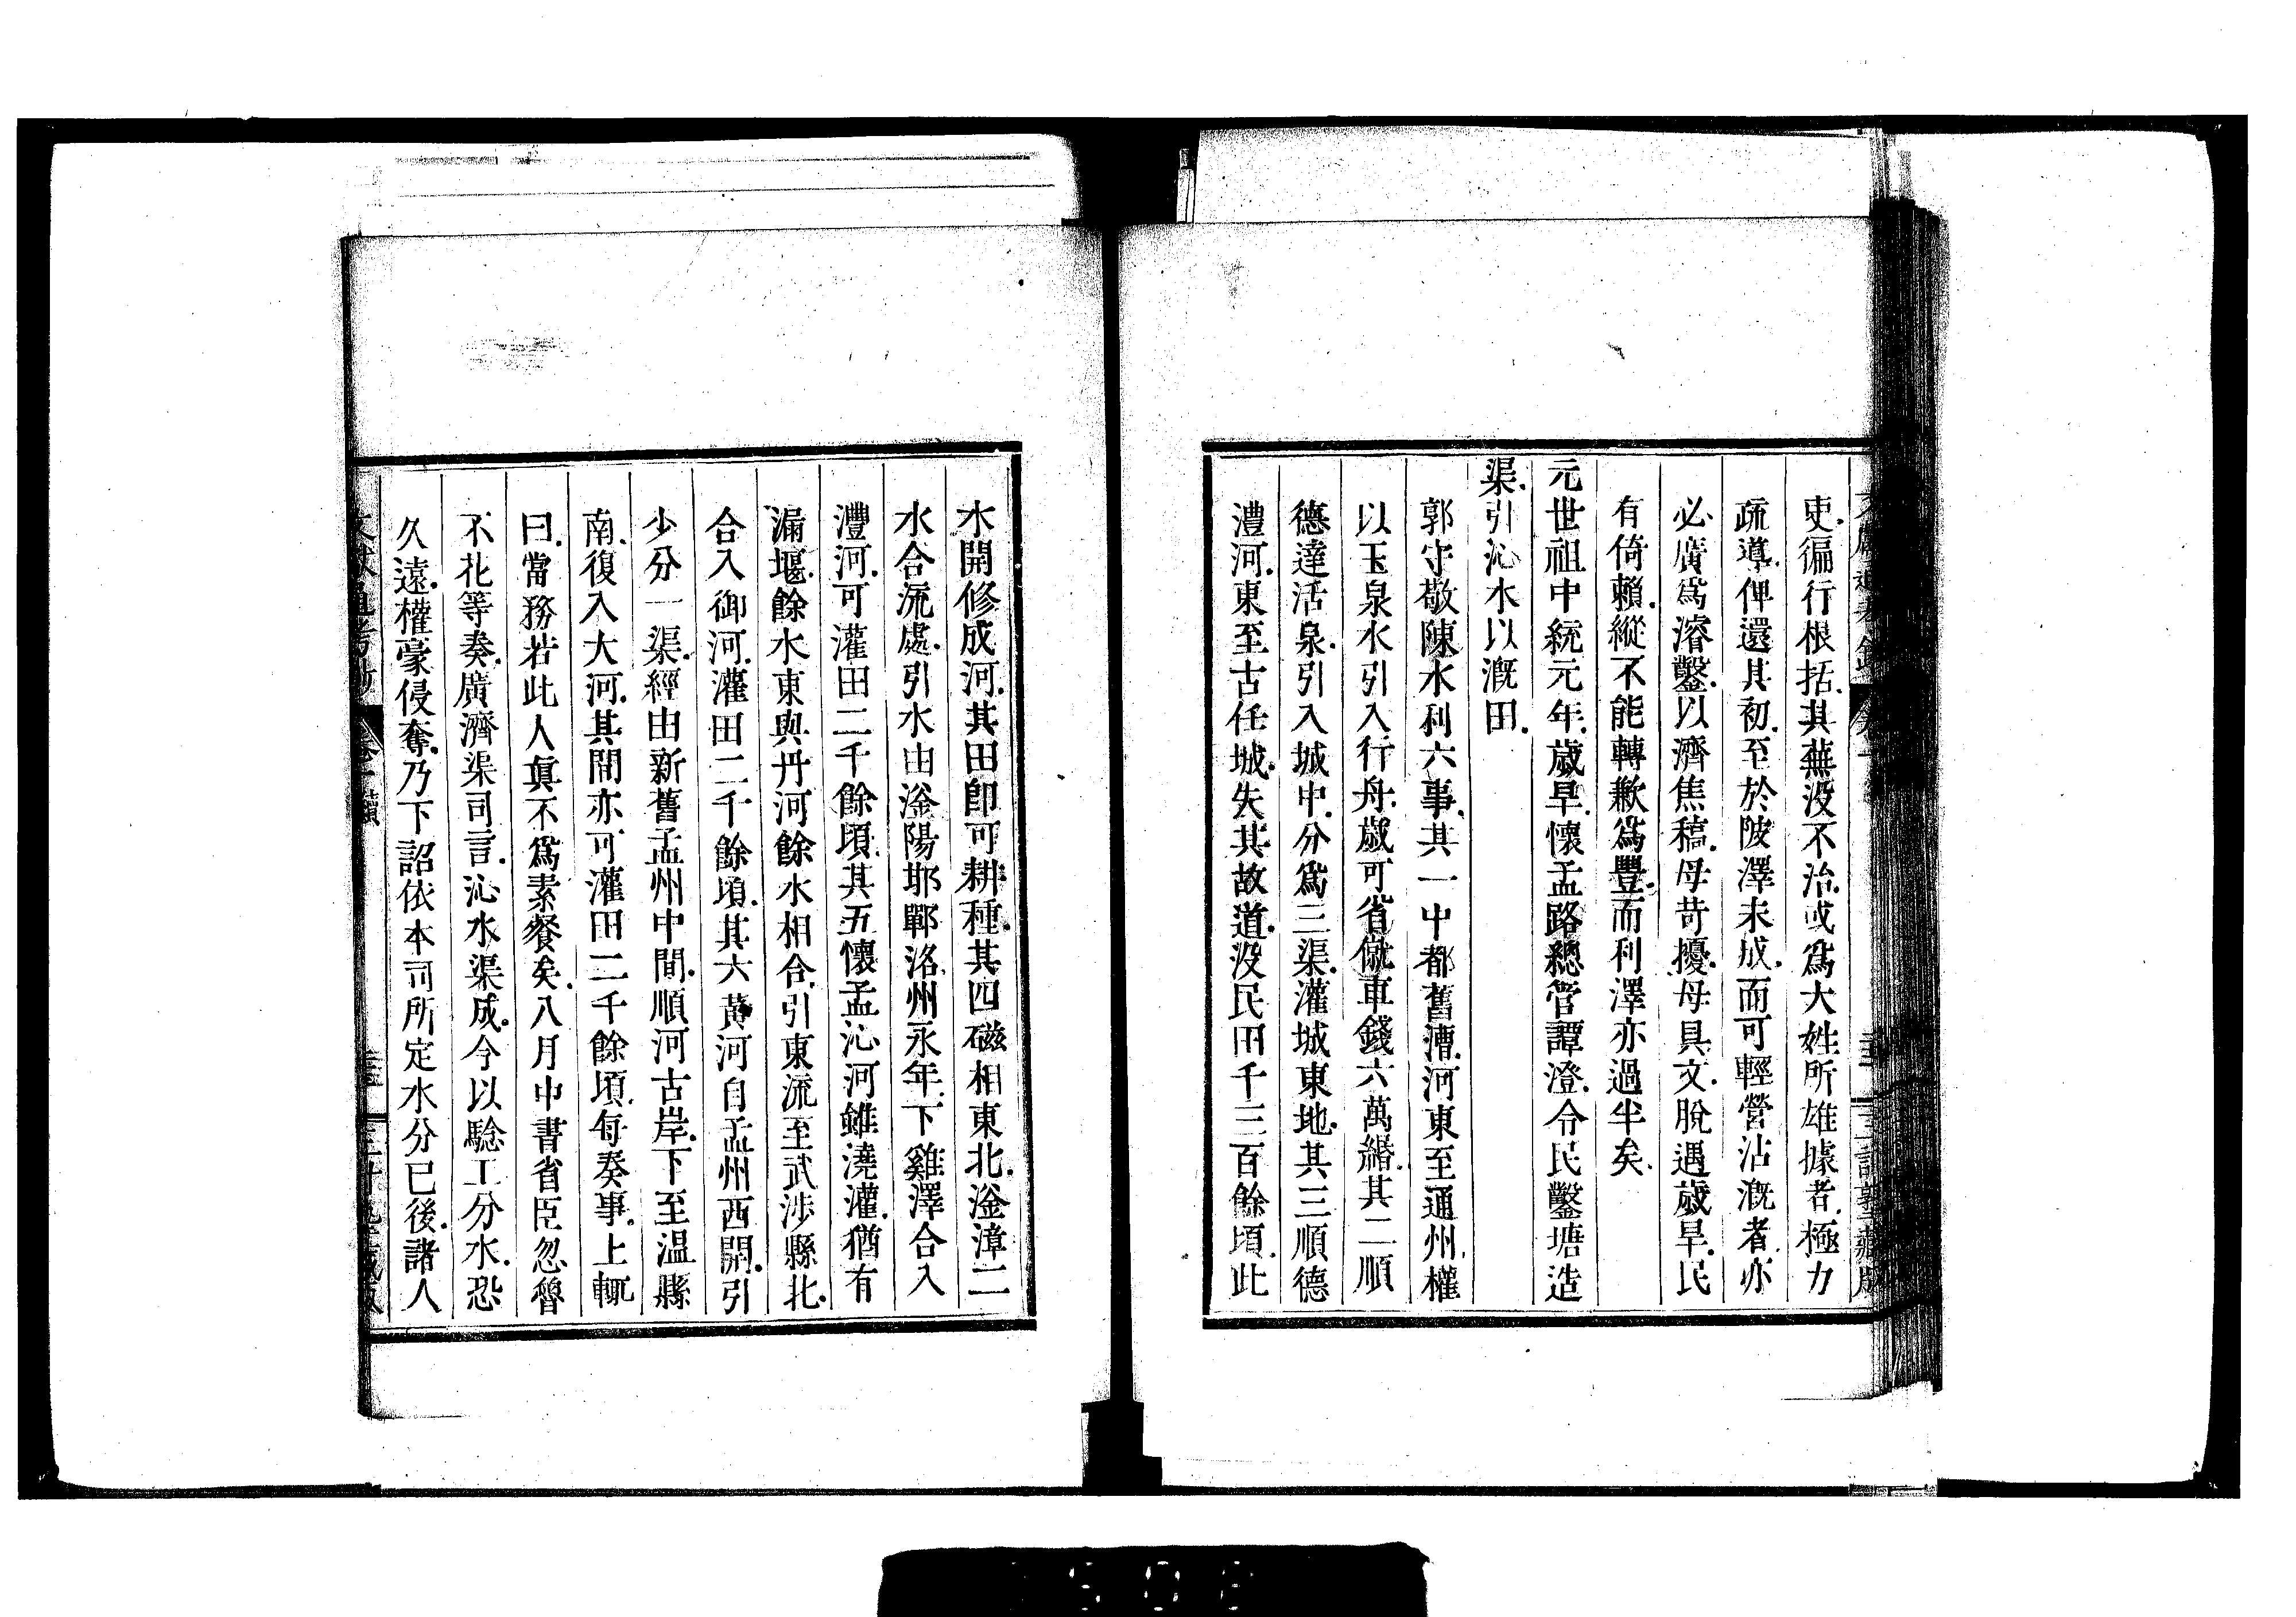 吏徧行根括其蕪沒不治或爲大姓所雄據者極力
疏導俾還其初至於陂澤未成而可輕營沾漑者亦
必廣爲濬鑿以濟焦稿母苛擾母具文脫遇歲旱民
有倚賴縱不能轉歉爲豐而利澤亦過半矣
元世祖中統元年歲旱懷孟路總管譚澄令民鑿塘造
渠引沁水以漑田
郭守敬陳水利六事其一中都舊漕河東至通州權
以玉泉水引入行舟歲可省僦車錢六萬緡其二順
德達活泉引入城中分爲三渠灌城東地其三順德
澧河東至古任城失其故道沒民田千三百餘頃此
水開修成河其田卽可耕種其四磁相東北滏漳二
水合流處引水由滏陽邯鄲洺州永年下雞澤合入
灃河可灌田二千餘頃其五懷孟沁河雖澆灌猶有
漏堰餘水東與丹河餘水相合引東流至武涉縣北
合入御河灌田二千餘頃其六黃河自孟州西開引
少分一渠經由新舊孟州中間順河古岸下至溫縣
南復入大河其間亦可灌田二千餘頃每奏事上輒
曰當務若此人眞不爲素餐矣八月中書省臣忽魯
不花等奏廣濟渠司言沁水渠成今以驗工分水恐
久遠權豪侵奪乃下詔依本司所定水分已後諸人
文獻通考